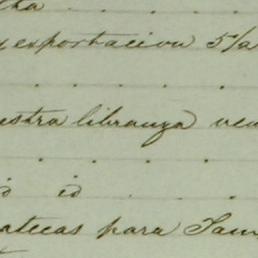 tha
y exportacion 5/a
estra libranza ven
id id
atecas para Tam